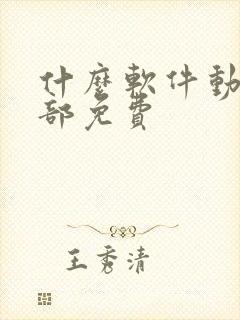 什麼軟件動
部免費
王秀清